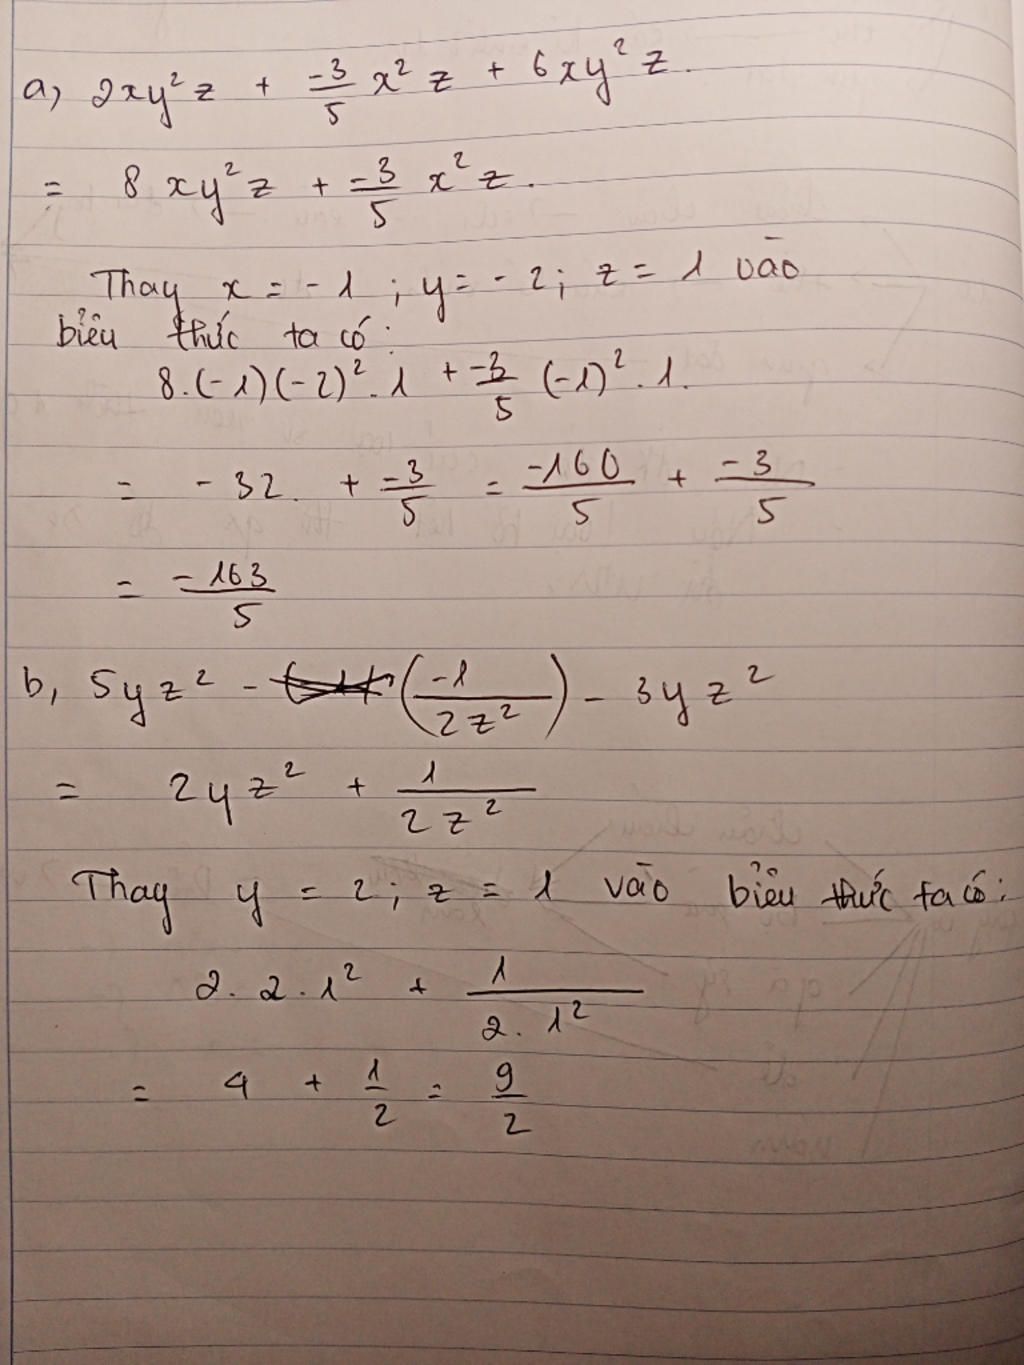 a, 2xy² z + -3/5 x² z + 6xy² z.
= 8 xy² z + -3/5 x² z.
Thay x = - 1 ; y = - 2 ; z = 1 vào
biểu thức ta có:
8.(-1)(-2)² . 1 + -3/5 (-1)² . 1.
= - 32. + -3/5 = -160/5 + -3/5
= -163/5
b, 5yz² - (-1/2z²) - 3yz²
= 2yz² + 1/2z²
Thay y = 2 ; z = 1 vào biểu thức ta có:
2. 2. 1² + 1/2. 1²
= 4 + 1/2 = 9/2